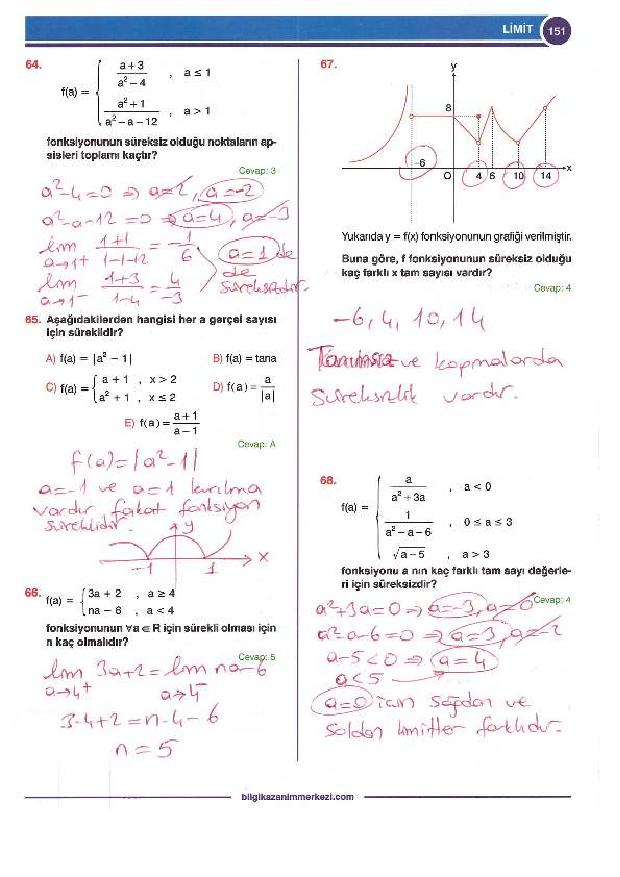 LİMİT 151
64.
f(a) =
a + 3
a² – 4 , a ≤ 1
a² + 1
a² – a – 12 , a > 1
fonksiyonunun süreksiz olduğu noktaların ap-
sisleri toplamı kaçtır?
Cevap: 3
a²-4=0 ⇒ a=2, a=-2
a²-a-12=0 ⇒ a=4, a=-3
lim 1+1 = -1
a→1⁺ 1-1-12 6
a=1 de
de
süreksizdir.
lim 1+3 = 4
a→1⁻ 1-4 -3
65. Aşağıdakilerden hangisi her a gerçel sayısı
için süreklidir?
A) f(a) = |a² – 1| B) f(a) = tana
C) f(a) = { a + 1 , x > 2
a² + 1 , x ≤ 2
D) f(a) = a
|a|
E) f(a) = a + 1
a – 1
Cevap: A
f(a)=|a²-1|
a=-1 ve a=1 kırılma
vardır, fakat fonksiyon
süreklidir.
y
-1 1 x
66. f(a) = { 3a + 2 , a ≥ 4
na – 6 , a < 4
fonksiyonunun ∀a ∈ R için sürekli olması için
n kaç olmalıdır?
Cevap: 5
lim 3a+2 = lim na-6
a→4⁺ a→4⁻
3·4+2 = n·4-6
n = 5
67.
y
8
-6 O 4 6 10 14 x
Yukarıda y = f(x) fonksiyonunun grafiği verilmiştir.
Buna göre, f fonksiyonunun süreksiz olduğu
kaç farklı x tam sayısı vardır?
Cevap: 4
-6, 4, 10, 14
ve kopmalarda
süreksizlik vardır.
68.
f(a) =
a
a² + 3a , a < 0
1
a² – a – 6 , 0 ≤ a ≤ 3
√a – 5 , a > 3
fonksiyonu a nın kaç farklı tam sayı değerle-
ri için süreksizdir?
Cevap: 4
a²+3a=0 ⇒ a=-3, a=0
a²-a-6=0 ⇒ a=3, a=-2
a-5<0 ⇒ a=4
a<5
a=0 için sağdan ve
soldan limitler farklıdır.
bilgikazanimmerkezi.com